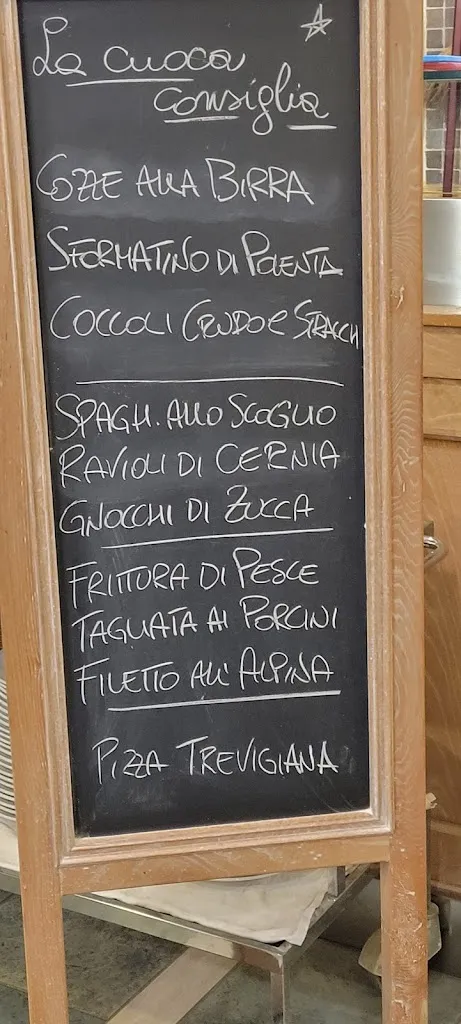 La cuoca
consiglia
COZZE ALLA BIRRA
SFORMATINO DI POLENTA
COCCOLI CRUDO E STRACCH
SPAGH. ALLO SCOGLIO
RAVIOLI DI CERNIA
GNOCCHI DI ZUCCA
FRITTURA DI PESCE
TAGLIATA AI PORCINI
FILETTO ALL'ALPINA
PIZZA TREVIGIANA